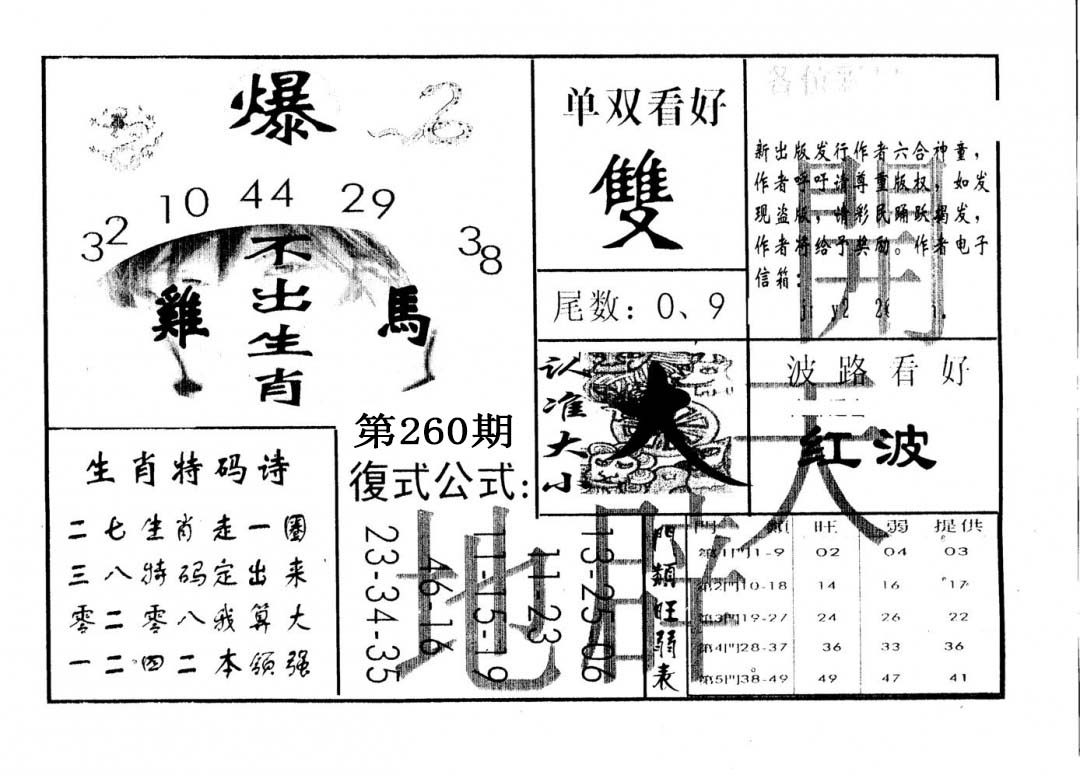 爆
32 10 44 29 38
不出生肖
雞 馬
第260期
復式公式:
23-34-35
46-16
11-15-19
11-23
13-25-06
生肖特码诗
二七生肖走一圈
三八特码定出来
零二零八我算大
一二四二本领强
单双看好
雙
尾数：0、9
认准大小
大
新出版发行作者六合神童，
作者呼吁请尊重版权，如发
现盗版，请彩民踊跃揭发，
作者将给予奖励。作者电子
信箱：
波路看好
紅波
門類旺弱表
門類 旺 弱 提供
第1門1-9 02 04 03
第2門10-18 14 16 17
第3門19-27 24 26 22
第4門28-37 36 33 36
第5門38-49 49 47 41